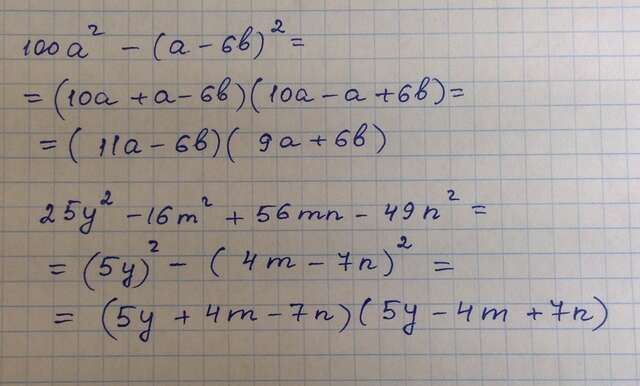 100a² - (a - 6в)² =
= (10a + a - 6в)(10a - a + 6в) =
= (11a - 6в)(9a + 6в)
25y² - 16m² + 56mn - 49n² =
= (5y)² - (4m - 7n)² =
= (5y + 4m - 7n)(5y - 4m + 7n)